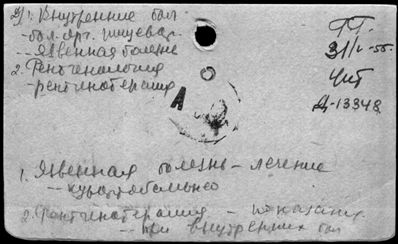 1. Внутренние бол-
-бол. орг. пищевар.
-- язвенная болезнь
2. Рентгенология
-рентгенотерапия
31/V-55.
Чит
Д-13348
А
1. Язвенная болезнь - лечение
2. Рентгенотерапия -
-- при внутренних бол